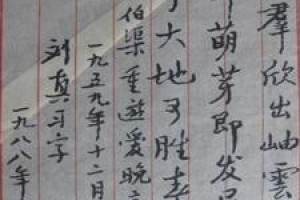 羣欣出岫雲
萌芽即发
大地可胜春
伯渠重遊爱晚
一九五九年十二月
刘真习字
一九八八年